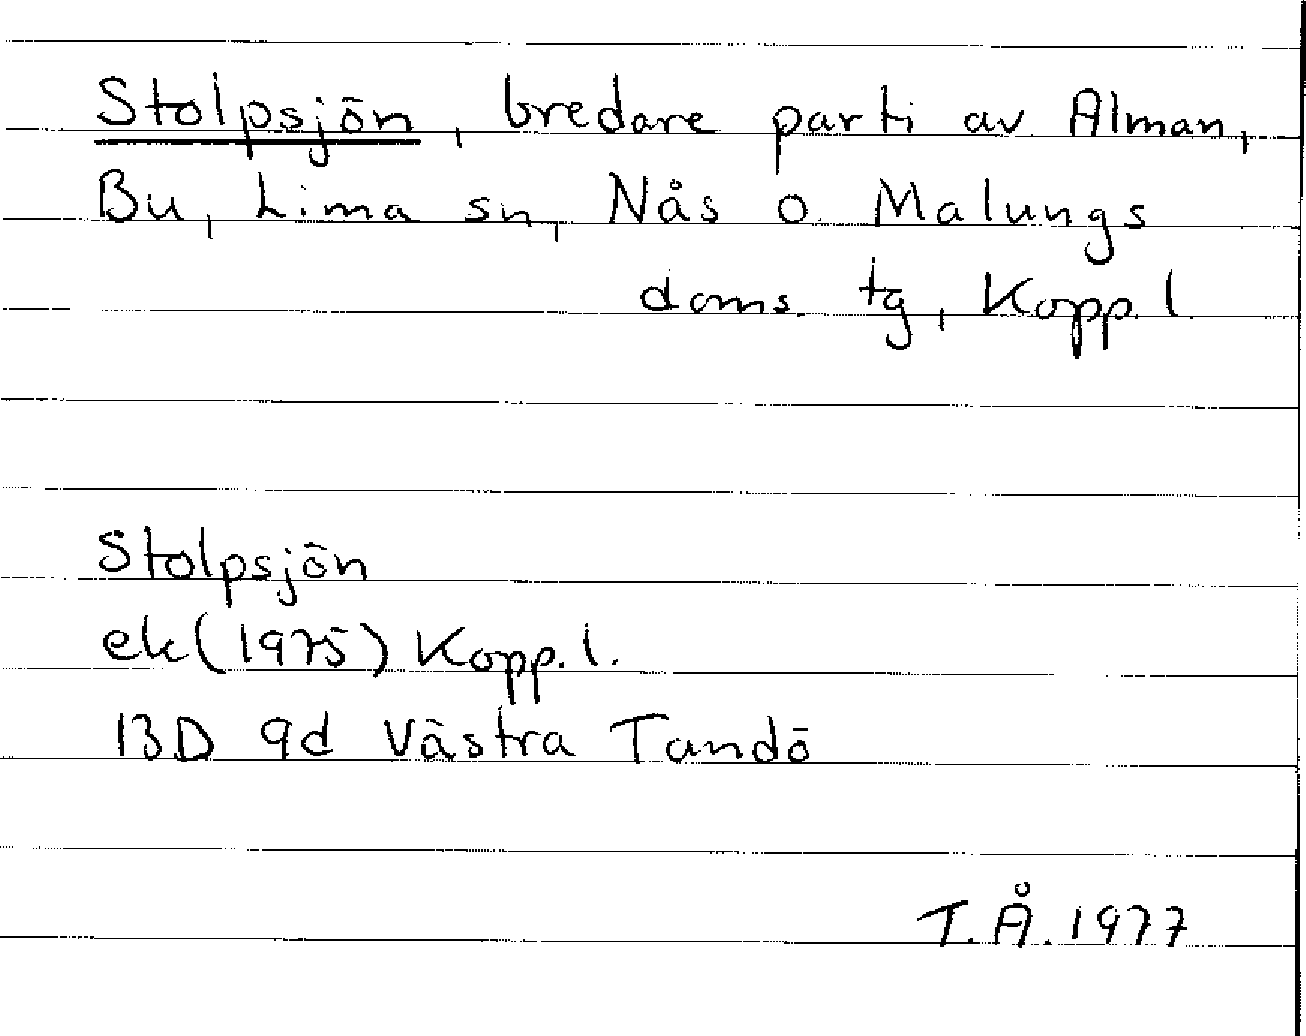 Stolpsjön, bredare parti av Alman,
Bu, Lima sn, Nås o Malungs
doms. tg, Kopp. l
Stolpsjön
ek (1975) Kopp. l.
13D 9d Västra Tandö
T.Å. 1977